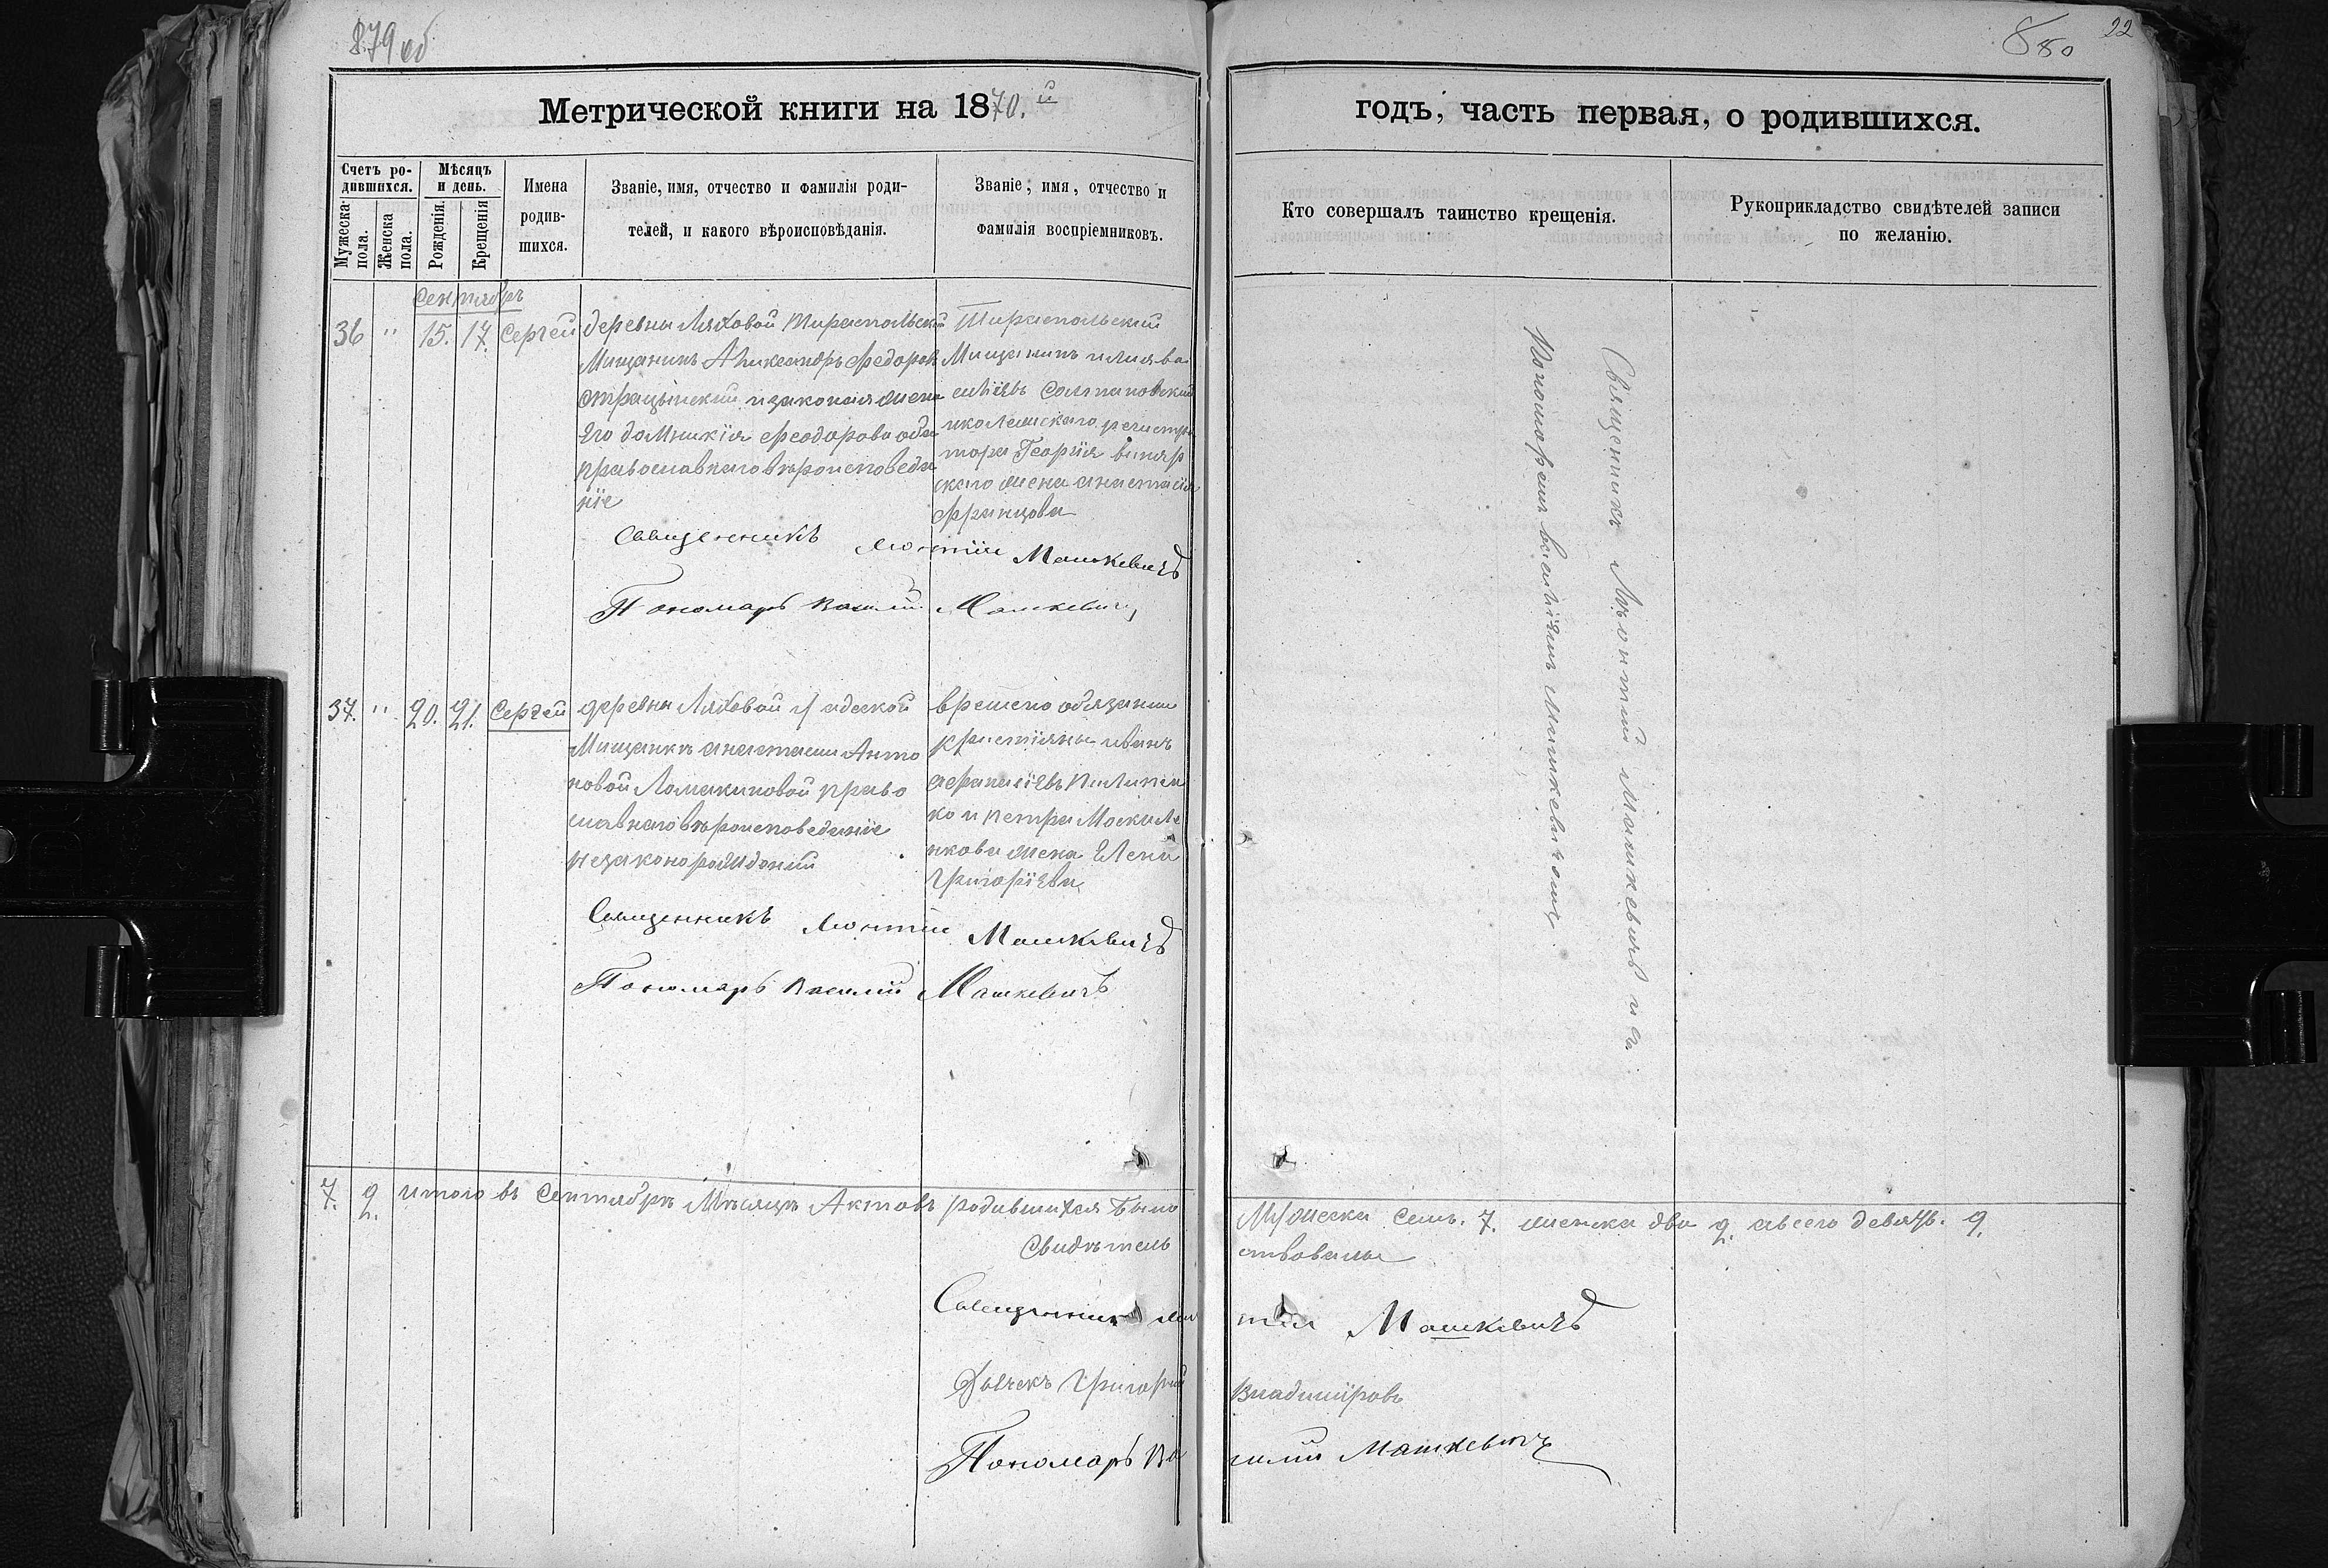 879 об
880
22
Метрической книги на 1870.й
годъ, часть первая, о родившихся.
Счетъ ро-
дившихся.
Мужеска
пола.
Женска
пола.
Мѣсяцъ
и день.
Рожденія.
Крещенія
Имена
родив-
шихся.
Званіе, имя, отчество и фамилія роди-
телей, и какого вѣроисповѣданія.
Званіе, имя, отчество и
фамилія воспріемниковъ.
Кто совершалъ таинство крещенія.
Рукоприкладство свидѣтелей записи
по желанію.
Сентябрь
36 " 15. 17. Сергей
деревни Ляховой Тираспольскій
Мищанинъ Александръ Федоров
и законая жена
Его домникія феодорова оба
православнаго вѣроисповеда
ніе
Тираспольский
Мищанинъ илия ва
силіевъ
колежскаго регистра
тора Георгія
скаго жена анастасия
францова
Священникъ Леонтий Машкевичъ
Пономарь Василий Машкевичъ
37. " 20. 21. Сергей
деревни Ляховой
Мищанкѣ анастасии Анто
новой Ломакиновой право
славнаго вѣроисповеданіе
незаконорожданий
времено обязании
кристіяны иванъ
афанасіевъ
ко и петра
кова жена Елена
Григоріева
Священникъ Леонтий Машкевичъ
Пономарь Василий Машкевичъ
Священникъ Леонтий Машкевичъ и съ
Пономоремъ василіемъ машкевичомъ
7. 2. итого въ Сентябрѣ Мѣсяцѣ Актовъ родившихся было
Мужеска семь. 7. женска два 2. а всего девять. 9.
Свидѣтель
ствовали
Священникъ Леон
тий Машкевичъ
Дьячекъ Григорий
Владиміровъ
Пономарь Ва
силий Машкевичъ